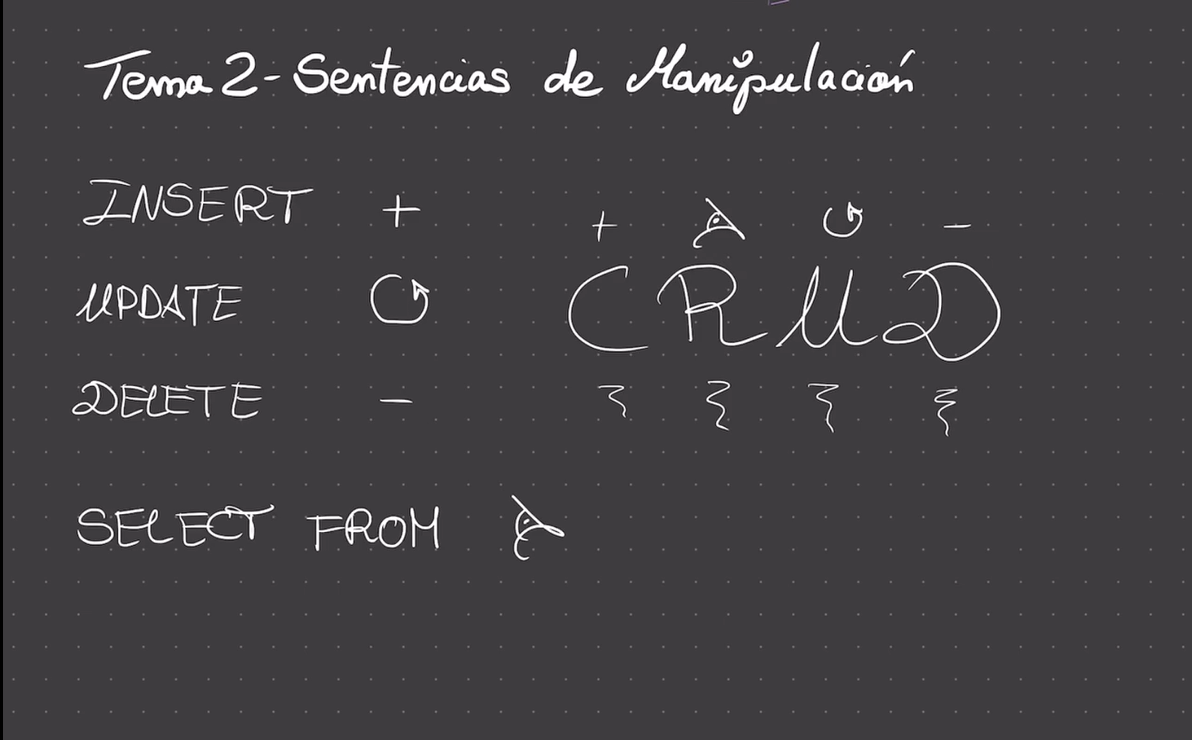 Tema 2 - Sentencias de Manipulación
INSERT +
UPDATE
DELETE -
+ -
CRUD
SELECT FROM